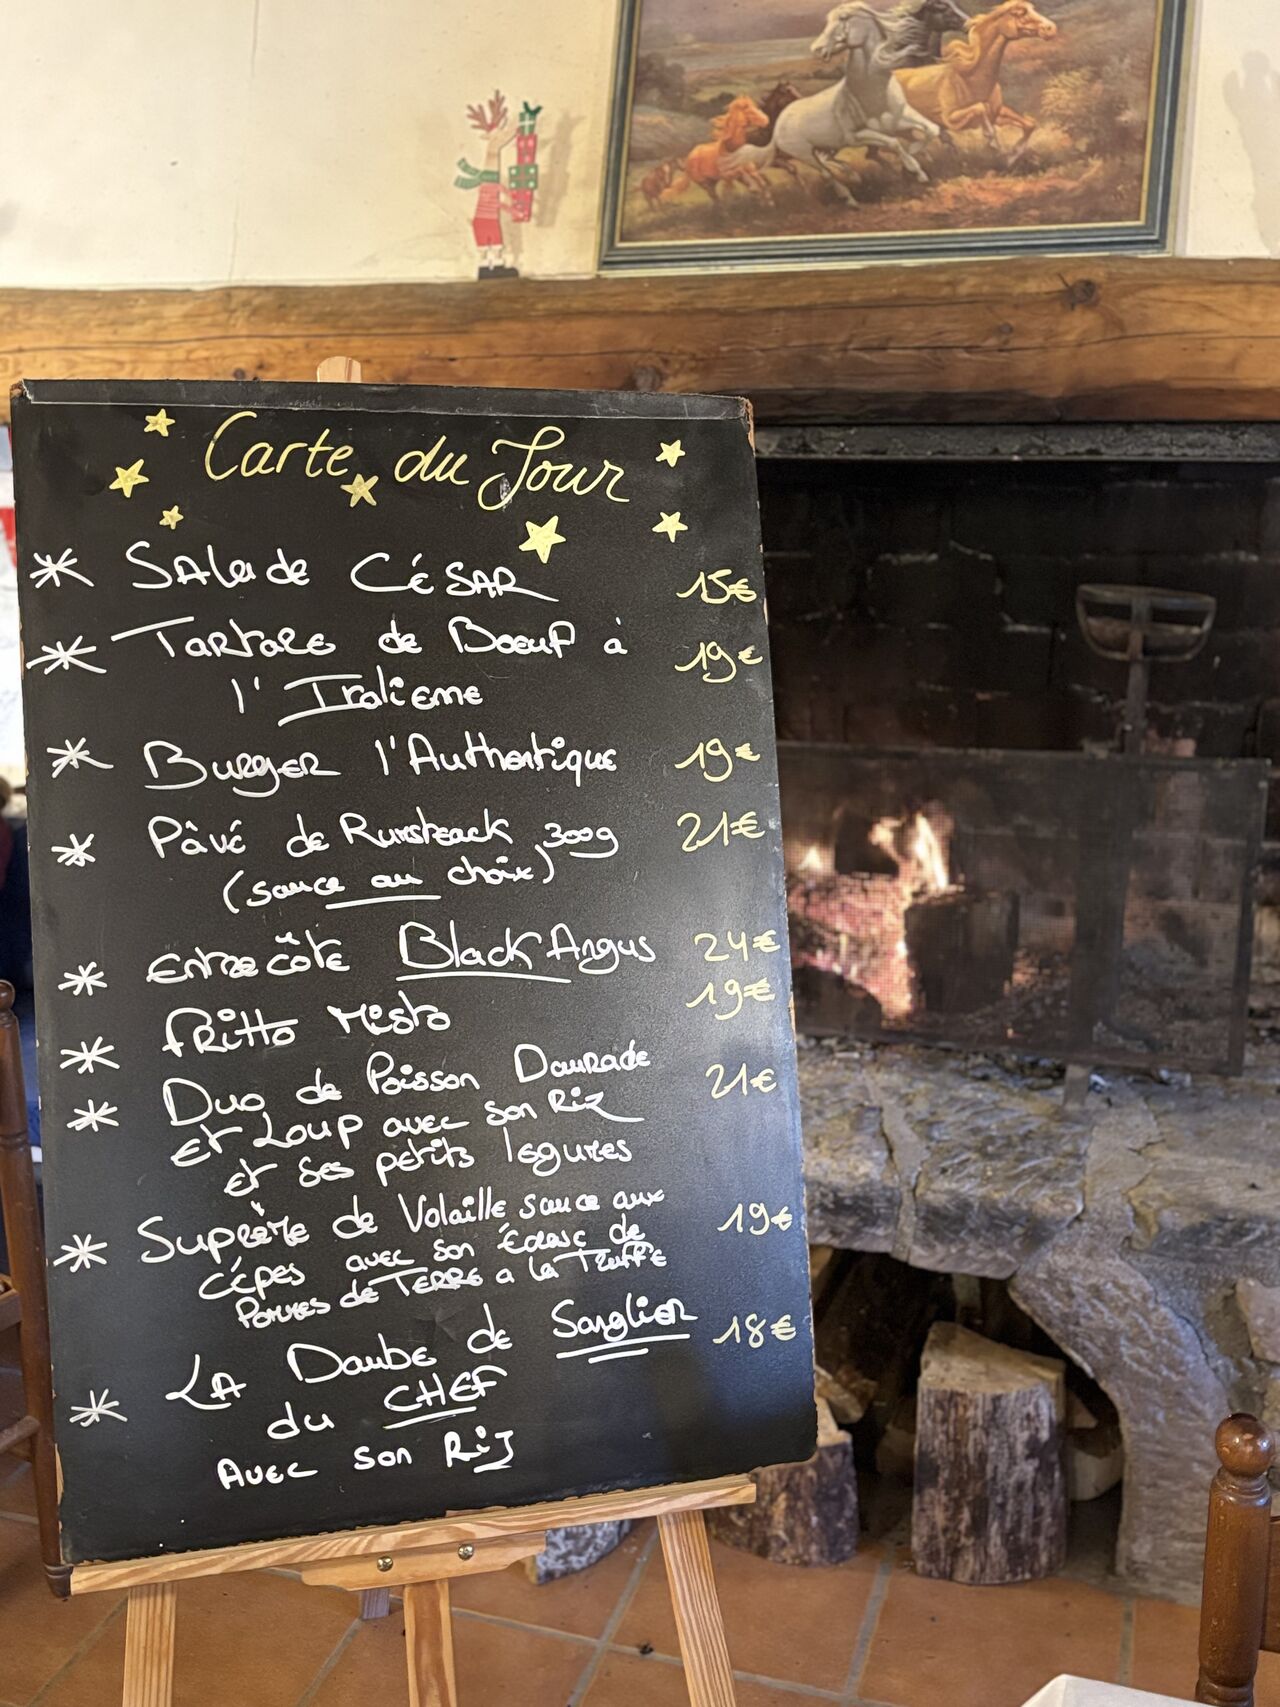 Carte du Jour
* Salade César 15€
* Tartare de Boeuf à 19€
l'Italienne
* Burger l'Authentique 19€
* Pâvé de Rumsteack 300g 21€
(sauce au choix)
* Entrecôte Black Angus 24€
* Fritto Misto 19€
* Duo de Poisson Daurade 21€
et Loup avec son Riz
et ses petits legumes
* Suprème de Volaille sauce aux 19€
cépes avec son Écrasé de
Pommes de Terre a la Truffe
* La Daube de Sanglier 18€
du CHEF
Avec son Riz